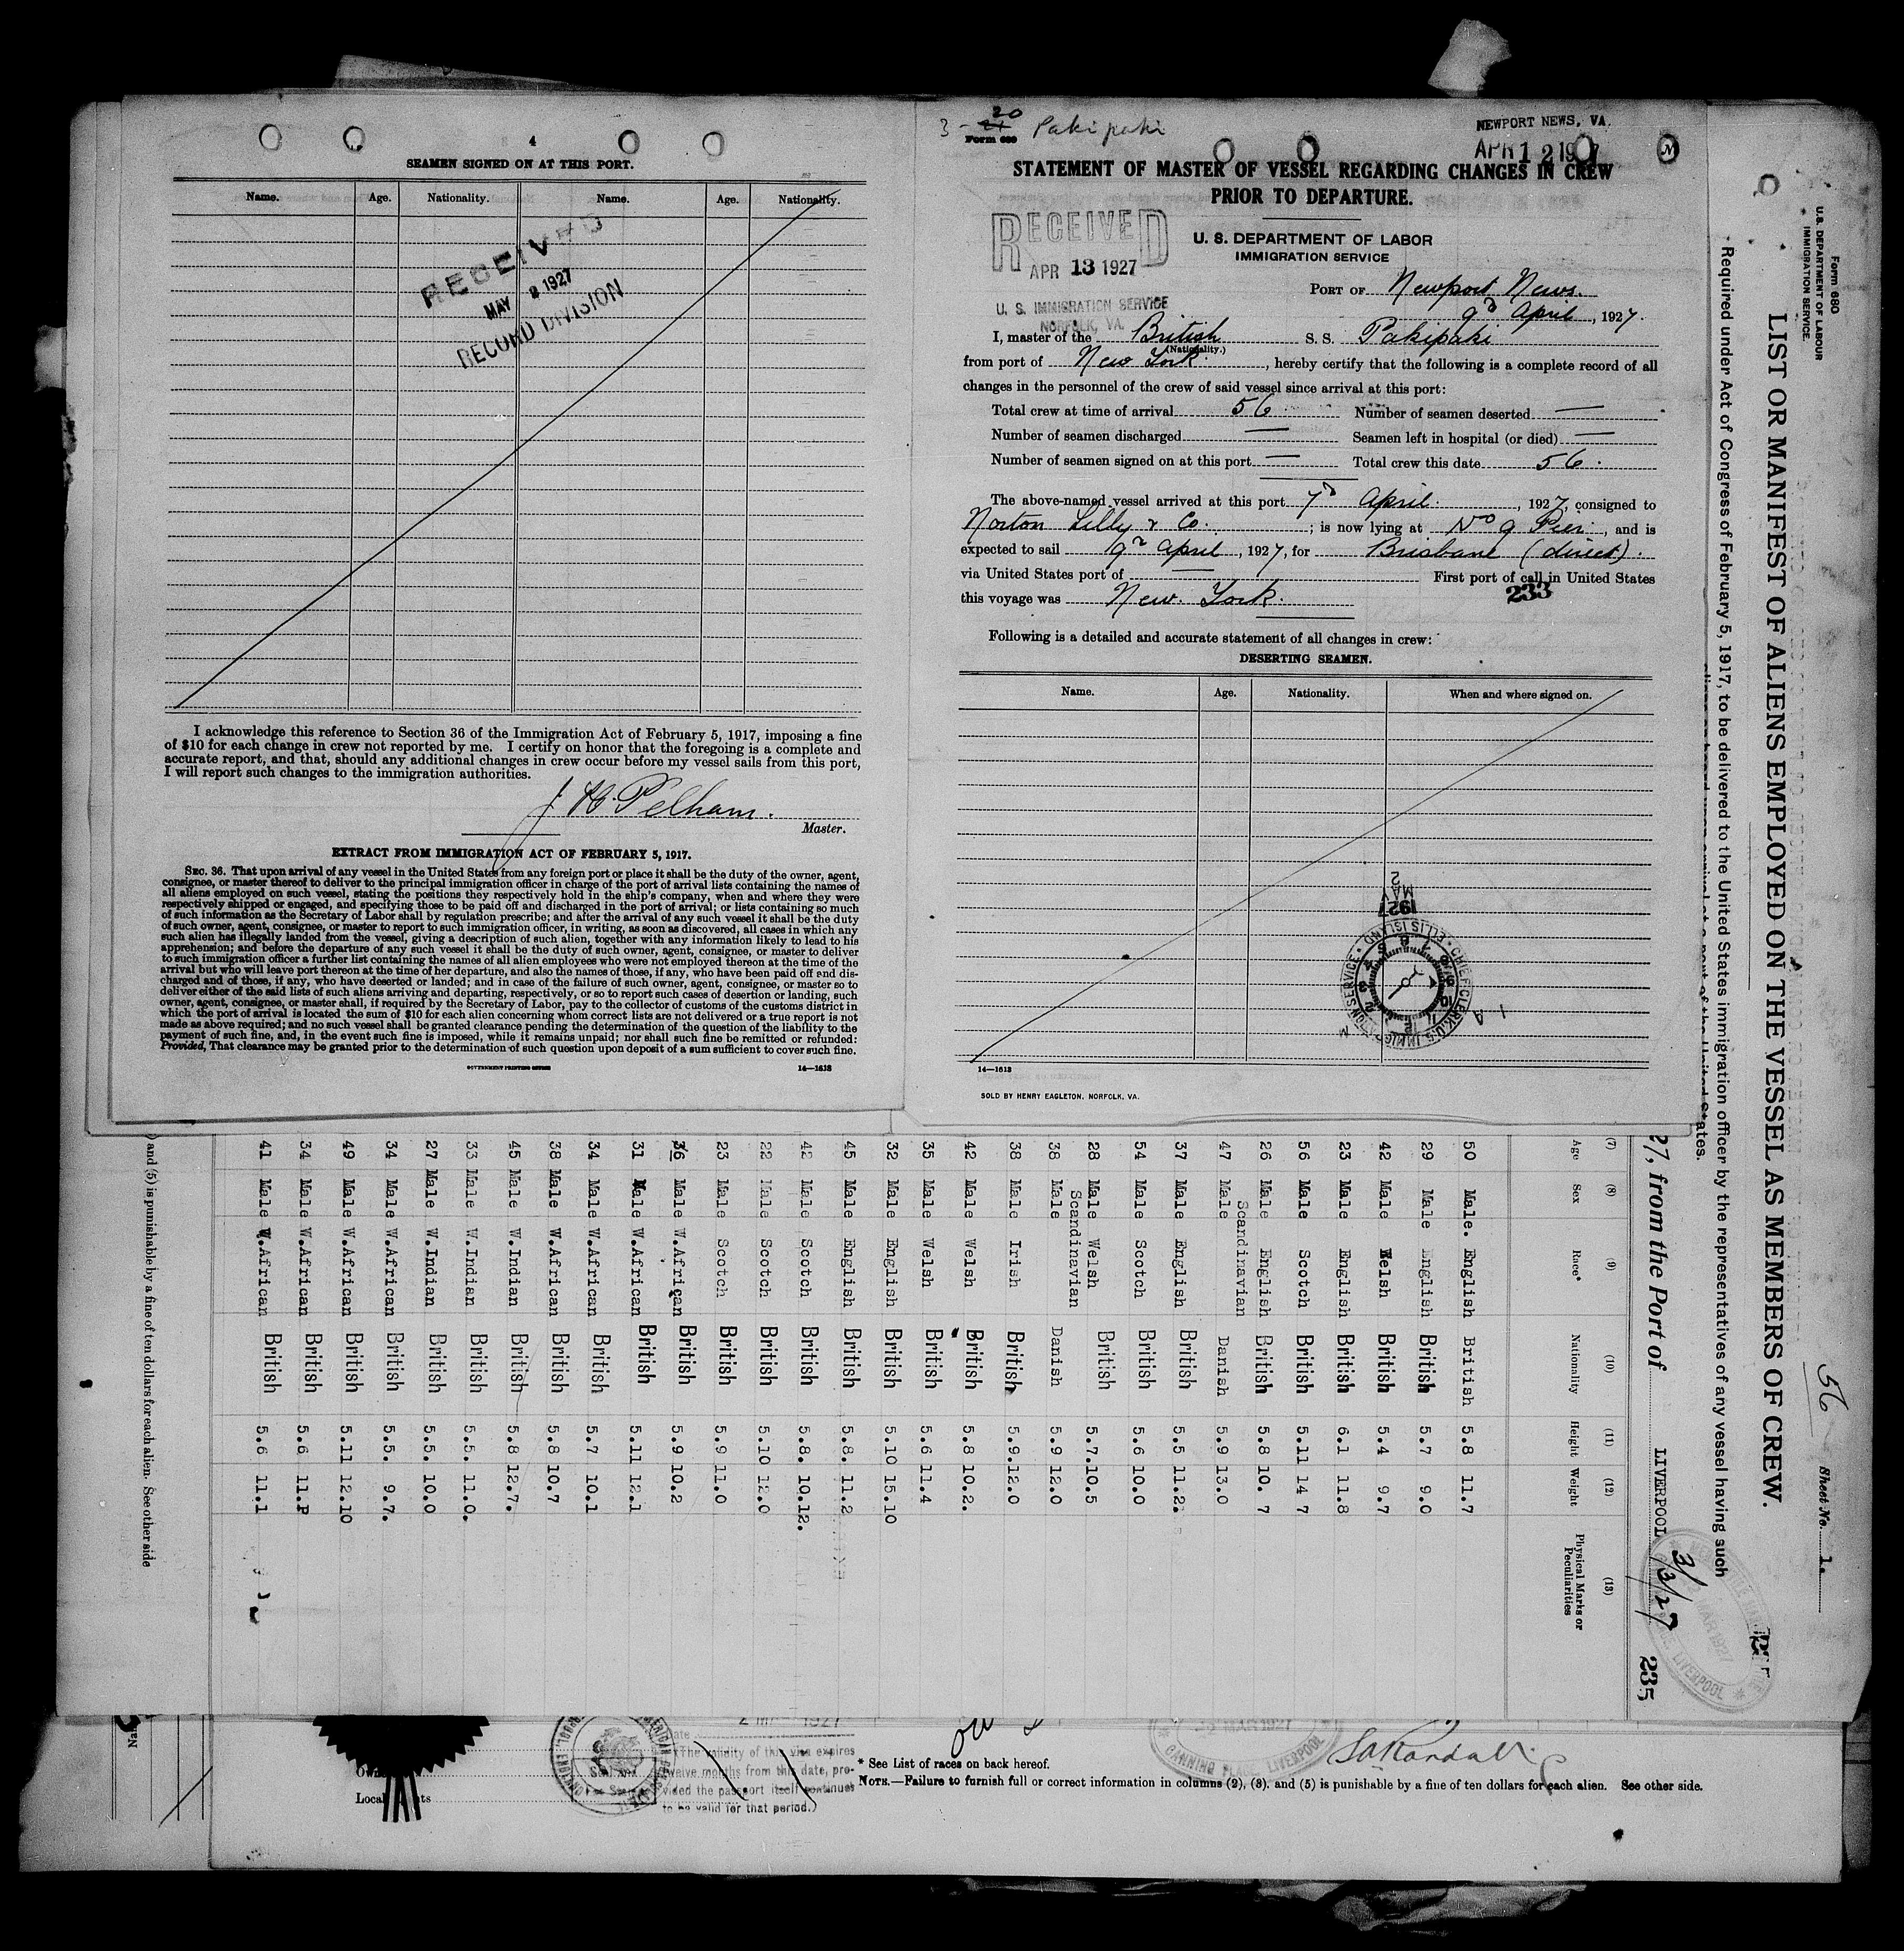 4
SEAMEN SIGNED ON AT THIS PORT.
Name. Age. Nationality. Name. Age. Nationality.
RECEIVED
MAY 2 1927
RECORD DIVISION
I acknowledge this reference to Section 36 of the Immigration Act of February 5, 1917, imposing a fine
of $10 for each change in crew not reported by me. I certify on honor that the foregoing is a complete and
accurate report, and that, should any additional changes in crew occur before my vessel sails from this port,
I will report such changes to the immigration authorities.
J. H. Pelham.
Master.
EXTRACT FROM IMMIGRATION ACT OF FEBRUARY 5, 1917.
SEC. 36. That upon arrival of any vessel in the United States from any foreign port or place it shall be the duty of the owner, agent,
consignee, or master thereof to deliver to the principal immigration officer in charge of the port of arrival lists containing the names of
all aliens employed on such vessel, stating the positions they respectively hold in the ship's company, when and where they were
respectively shipped or engaged, and specifying those to be paid off and discharged in the port of arrival; or lists containing so much
of such information as the Secretary of Labor shall by regulation prescribe; and after the arrival of any such vessel it shall be the duty
of such owner, agent, consignee, or master to report to such immigration officer, in writing, as soon as discovered, all cases in which any
such alien has illegally landed from the vessel, giving a description of such alien, together with any information likely to lead to his
apprehension; and before the departure of any such vessel it shall be the duty of such owner, agent, consignee, or master to deliver
to such immigration officer a further list containing the names of all alien employees who were not employed thereon at the time of the
arrival but who will leave port thereon at the time of her departure, and also the names of those, if any, who have been paid off and dis-
charged and of those, if any, who have deserted or landed; and in case of the failure of such owner, agent, consignee, or master so to
deliver either of the said lists of such aliens arriving and departing, respectively, or so to report such cases of desertion or landing, such
owner, agent, consignee, or master shall, if required by the Secretary of Labor, pay to the collector of customs of the customs district in
which the port of arrival is located the sum of $10 for each alien concerning whom correct lists are not delivered or a true report is not
made as above required; and no such vessel shall be granted clearance pending the determination of the question of the liability to the
payment of such fine, and, in the event such fine is imposed, while it remains unpaid; nor shall such fine be remitted or refunded:
Provided, That clearance may be granted prior to the determination of such question upon deposit of a sum sufficient to cover such fine.
GOVERNMENT PRINTING OFFICE 14—1613
3 - 20 Pakipaki
Form 680
NEWPORT NEWS, VA.
APR 12 1927
STATEMENT OF MASTER OF VESSEL REGARDING CHANGES IN CREW
PRIOR TO DEPARTURE.
RECEIVED
APR 13 1927
U. S. IMMIGRATION SERVICE
NORFOLK, VA.
U. S. DEPARTMENT OF LABOR
IMMIGRATION SERVICE
PORT OF Newport News.
9th April, 1927.
I, master of the British S. S. Pakipaki
(Nationality.)
from port of New York, hereby certify that the following is a complete record of all
changes in the personnel of the crew of said vessel since arrival at this port:
Total crew at time of arrival 56 Number of seamen deserted —
Number of seamen discharged — Seamen left in hospital (or died) —
Number of seamen signed on at this port — Total crew this date 56.
The above-named vessel arrived at this port 7th April, 1927, consigned to
Norton Lilly & Co.; is now lying at No 9 Pier, and is
expected to sail 9th April, 1927, for Brisbane (direct).
via United States port of — First port of call in United States
this voyage was New York. 233
Following is a detailed and accurate statement of all changes in crew:
DESERTING SEAMEN.
Name. Age. Nationality. When and where signed on.
1927
MAY
2
CHIEF CLERK U.S. IMMIGRATION SERVICE • ELLIS ISLAND •
14—1613
SOLD BY HENRY EAGLETON, NORFOLK, VA.
Form 680
U.S. DEPARTMENT OF LABOUR
IMMIGRATION SERVICE.
56
Sheet No. 1.
LIST OR MANIFEST OF ALIENS EMPLOYED ON THE VESSEL AS MEMBERS OF CREW.
Required under Act of Congress of February 5, 1917, to be delivered to the United States immigration officer by the representatives of any vessel having such
27, from the Port of LIVERPOOL 3/3/27 235
(7) (8) (9) (10) (11) (12) (13)
Age Sex Race* Nationality Height Weight Physical Marks or Peculiarities
50 Male. English British 5.8 11.7
29 Male English British 5.7 9.0
42 Male Welsh British 5.4 9.7
23 Male English British 6.1 11.8
56 Male Scotch British 5.11 14 7
26 Male English British 5.8 10. 7
47 Male Scandinavian Danish 5.9 13.0
37 Male English British 5.5 11.2.
54 Male Scotch British 5.6 10.0
28 Male Welsh British 5.7.10.5
38 Male Scandinavian Danish 5.9 12.0
38 Male Irish British 5.9.12.0
42 Male Welsh British 5.8 10.2.
35 Male Welsh British 5.6 11.4
32 Male English British 5.10 15.10
45 Male English British 5.8. 11.2
42 Male Scotch British 5.8. 10.12.
22 Male Scotch British 5.10 12.0
23 Male Scotch British 5.9 11.0
36 Male W.African British 5.9 10.2
31 Male W.African British 5.11 12.1
34 Male W.African British 5.7 10.1
38 Male W.African British 5.8 10.7
45 Male W.Indian British 5.8 12.7.
33 Male W.Indian British 5.5. 11.0.
27 Male W.Indian British 5.5. 10.0
34 Male W.African British 5.5. 9.7.
49 Male W.African British 5.11 12.10
34 Male W.African British 5.6 11.
41 Male W.African British 5.6 11.1
and (5) is punishable by a fine of ten dollars for each alien. See other side
(The validity of this visa expires
twelve months from this date, pro-
vided the passport itself continues
to be valid for that period.)
2 MAR 1927
CANNING PLACE, LIVERPOOL
* See List of races on back hereof.
NOTE.—Failure to furnish full or correct information in columns (2), (3). and (5) is punishable by a fine of ten dollars for each alien. See other side.